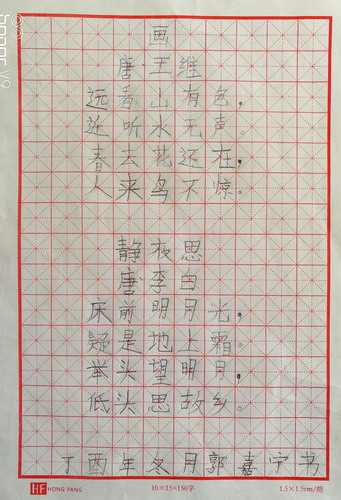 画
唐·王维
远看山有色，
近听水无声。
春去花还在，
人来鸟不惊。
静夜思
唐·李白
床前明月光，
疑是地上霜。
举头望明月，
低头思故乡。
丁酉年冬月郭嘉宁书
HF HONG FANG 10×15=150字 1.5×1.5cm/格
honor V9